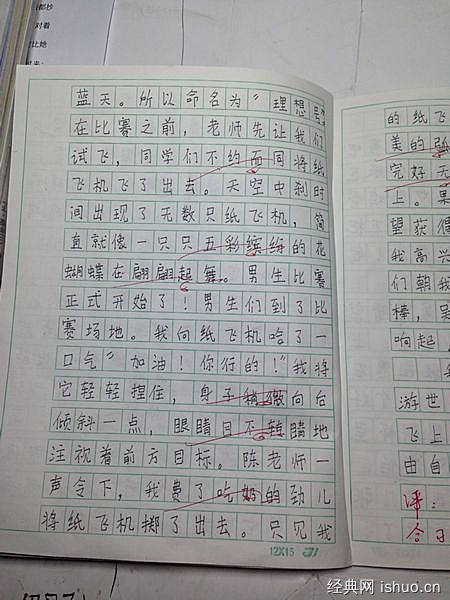 蓝天。所以命名为"理想号
在比赛之前，老师先让我们
试飞，同学们不约而同将纸
飞机飞了出去。天空中刹时
间出现了无数只纸飞机，简
直就像一只只五彩缤纷的花
蝴蝶在翩翩起舞。男生比赛
正式开始了！男生们到了比
赛场地。我向纸飞机哈了一
口气"加油！你行的！"我将
它轻轻捏住，身子稍微向后
倾斜一点，眼睛目不转睛地
注视着前方目标。陈老师一
声令下，我费了吃奶的劲儿
将纸飞机掷了出去。只见我
12×15 31
的纸飞
美的
完好无
上。果
望获得
我高兴
们朝我
棒，吴
响起，
我
游世
飞上
由自
评：
今日
都杪
对着
比她
经典网 ishuo.cn